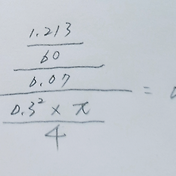 1.213
60
0.07
0.3² × π
4
=